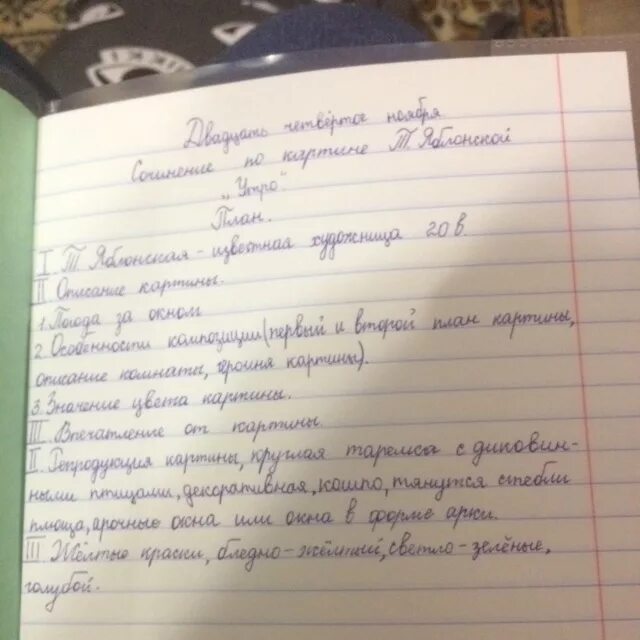 Двадцать четвёртое ноября
Сочинение по картине Т. Яблонской
„Утро".
План.
I Т. Яблонская - известная художница 20 в.
II Описание картины.
1. Погода за окном
2. Особенности композиции (первый и второй план картины,
описание комнаты, героиня картины).
3. Значение цвета картины.
III. Впечатление от картины.
II. Репродукция картины, круглая тарелка с диковин-
ными птицами, декоративная, кашпо, тянутся стебли
плюща, арочные окна или окна в форме арки.
III Жёлтые краски, бледно-жёлтый, светло-зелёные,
голубой.